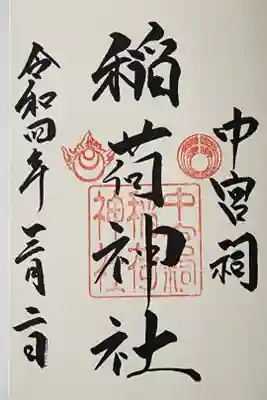 中宮祠
稲荷神社
中宮祠
稲荷
神社
令和四年三月二日